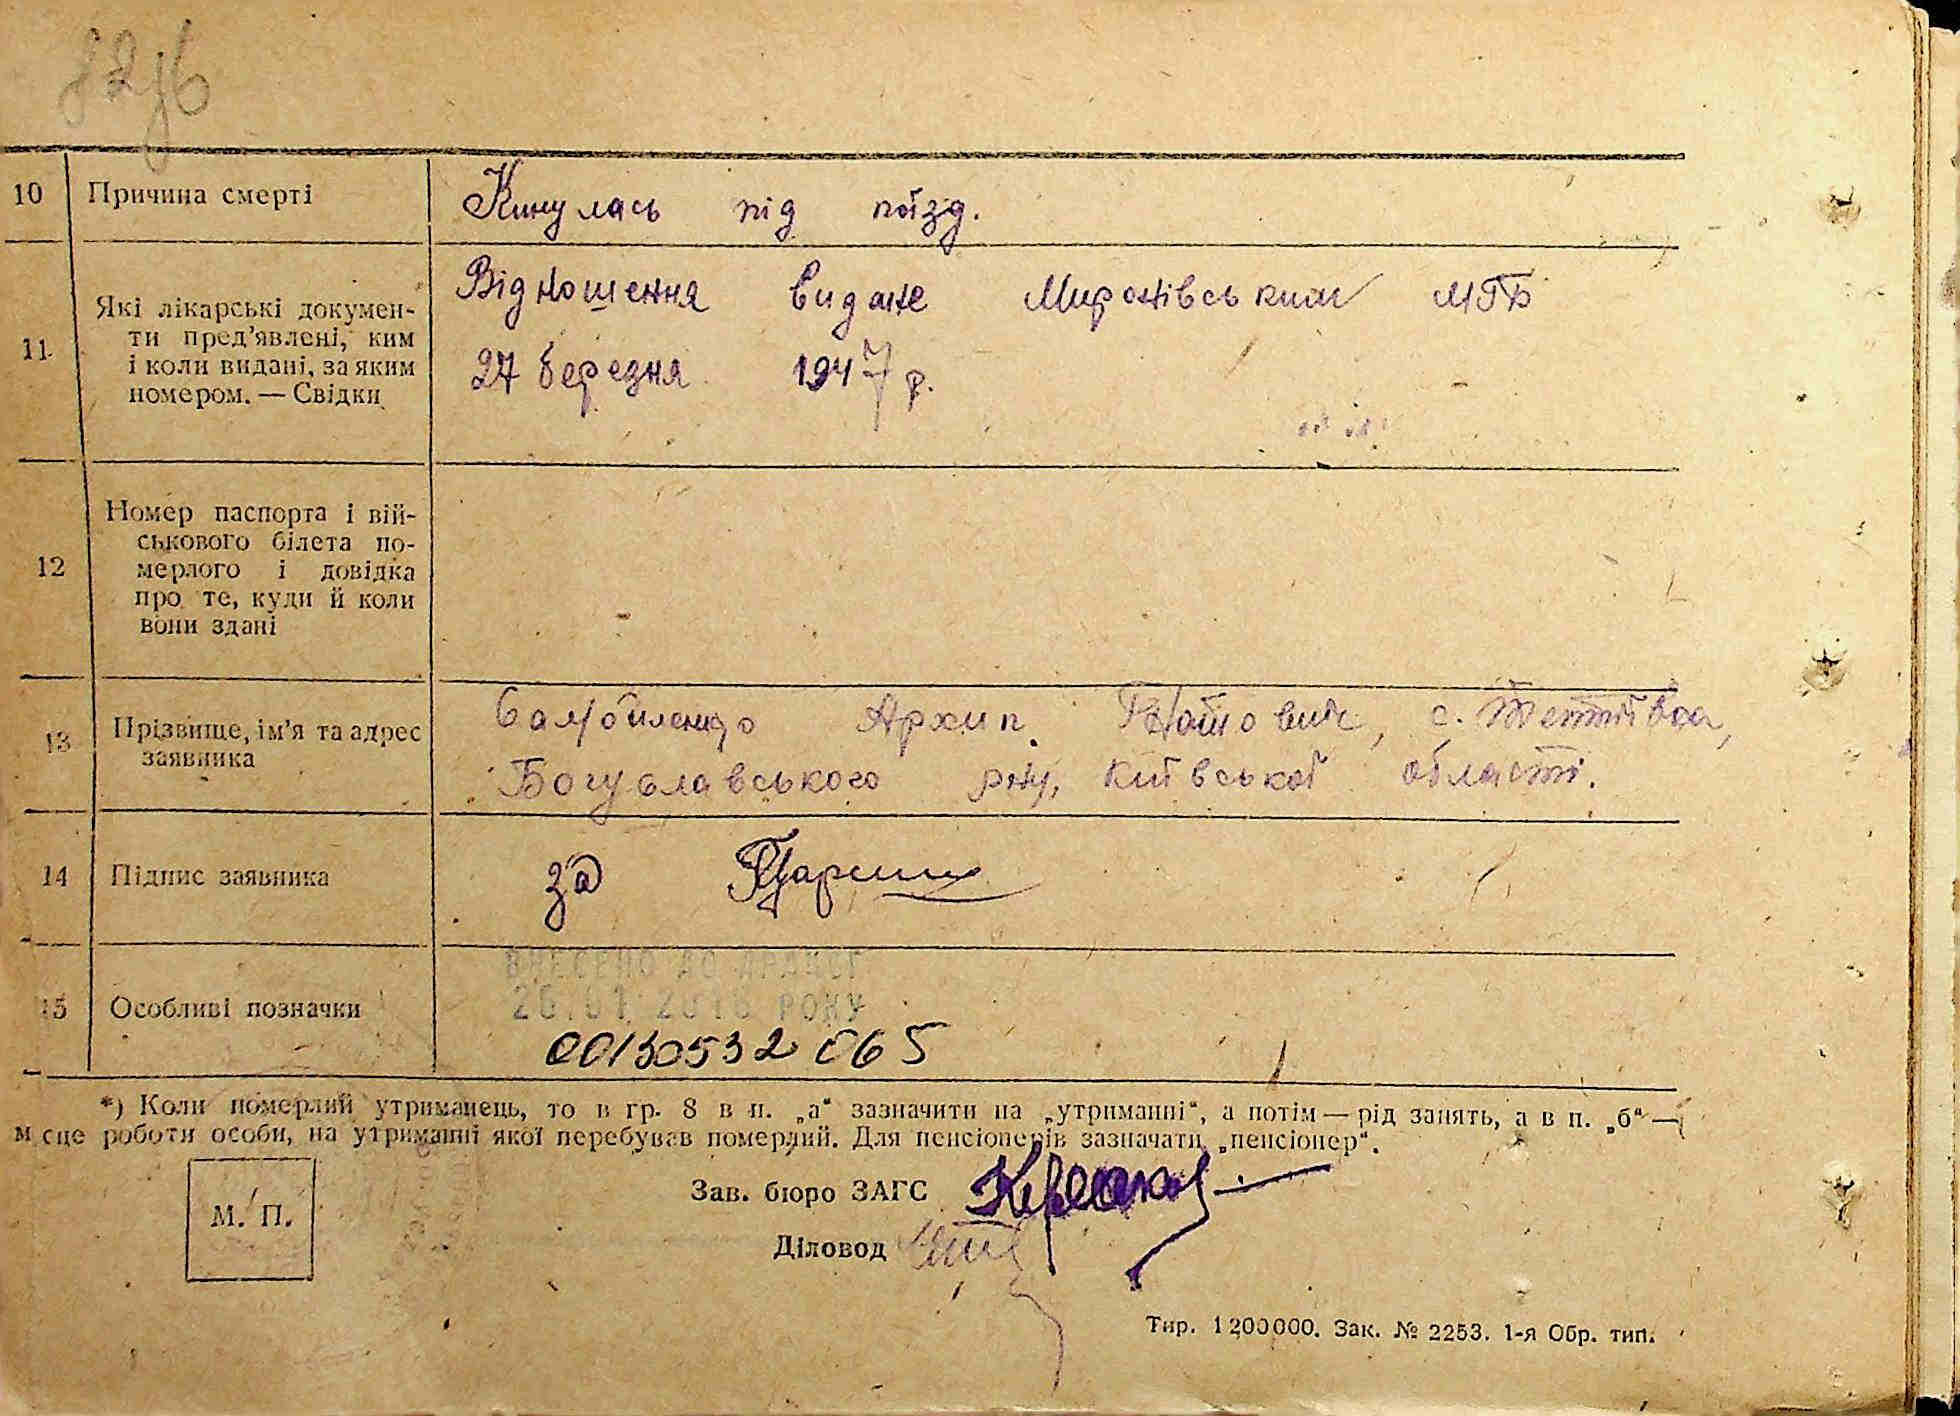 10 Причина смерті Кинулась під поїзд.
11 Які лікарські докумен-
ти пред’явлені, ким
і коли видані, за яким
номером. — Свідки
Відношення видане Миронівським МГБ
27 березня 1947 р.
12 Номер паспорта і вій-
ськового білета по-
мерлого і довідка
про те, куди й коли
вони здані
13 Прізвище, ім’я та адрес
заявника
Самойленко Архип с.
Богуславського р-ну, Київської області.
14 Підпис заявника за
15 Особливі позначки
ВНЕСЕНО ДО ДРАЦСГ
26.01.2016 РОКУ
00130532065
*) Коли померлий утриманець, то в гр. 8 в п. „а“ зазначити на „утриманні“, а потім — рід занять, а в п. „б“ —
м сце роботи особи, на утриманні якої перебував померлий. Для пенсіонерів зазначати „пенсіонер“.
М. П.
Зав. бюро ЗАГС
Діловод
Тир. 1200000. Зак. № 2253. 1-я Обр. тип.